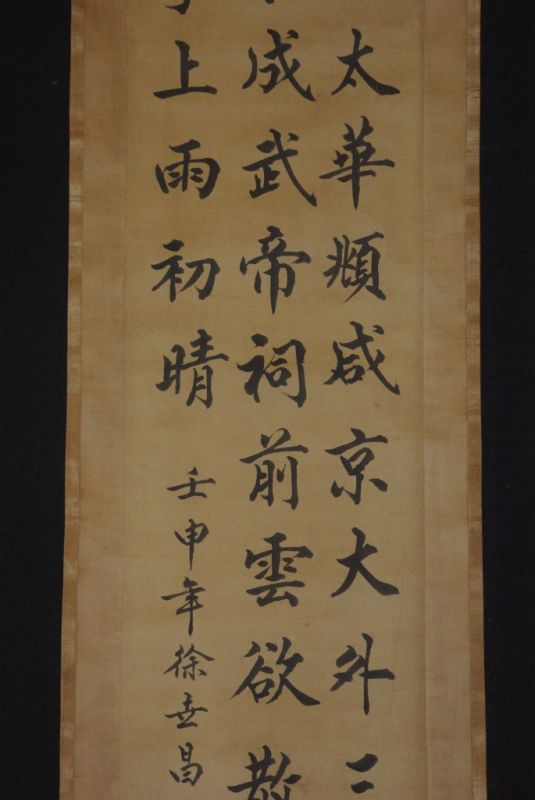 太華頫咸京大外
成武帝祠前雲欲散
上雨初晴
壬申年徐世昌